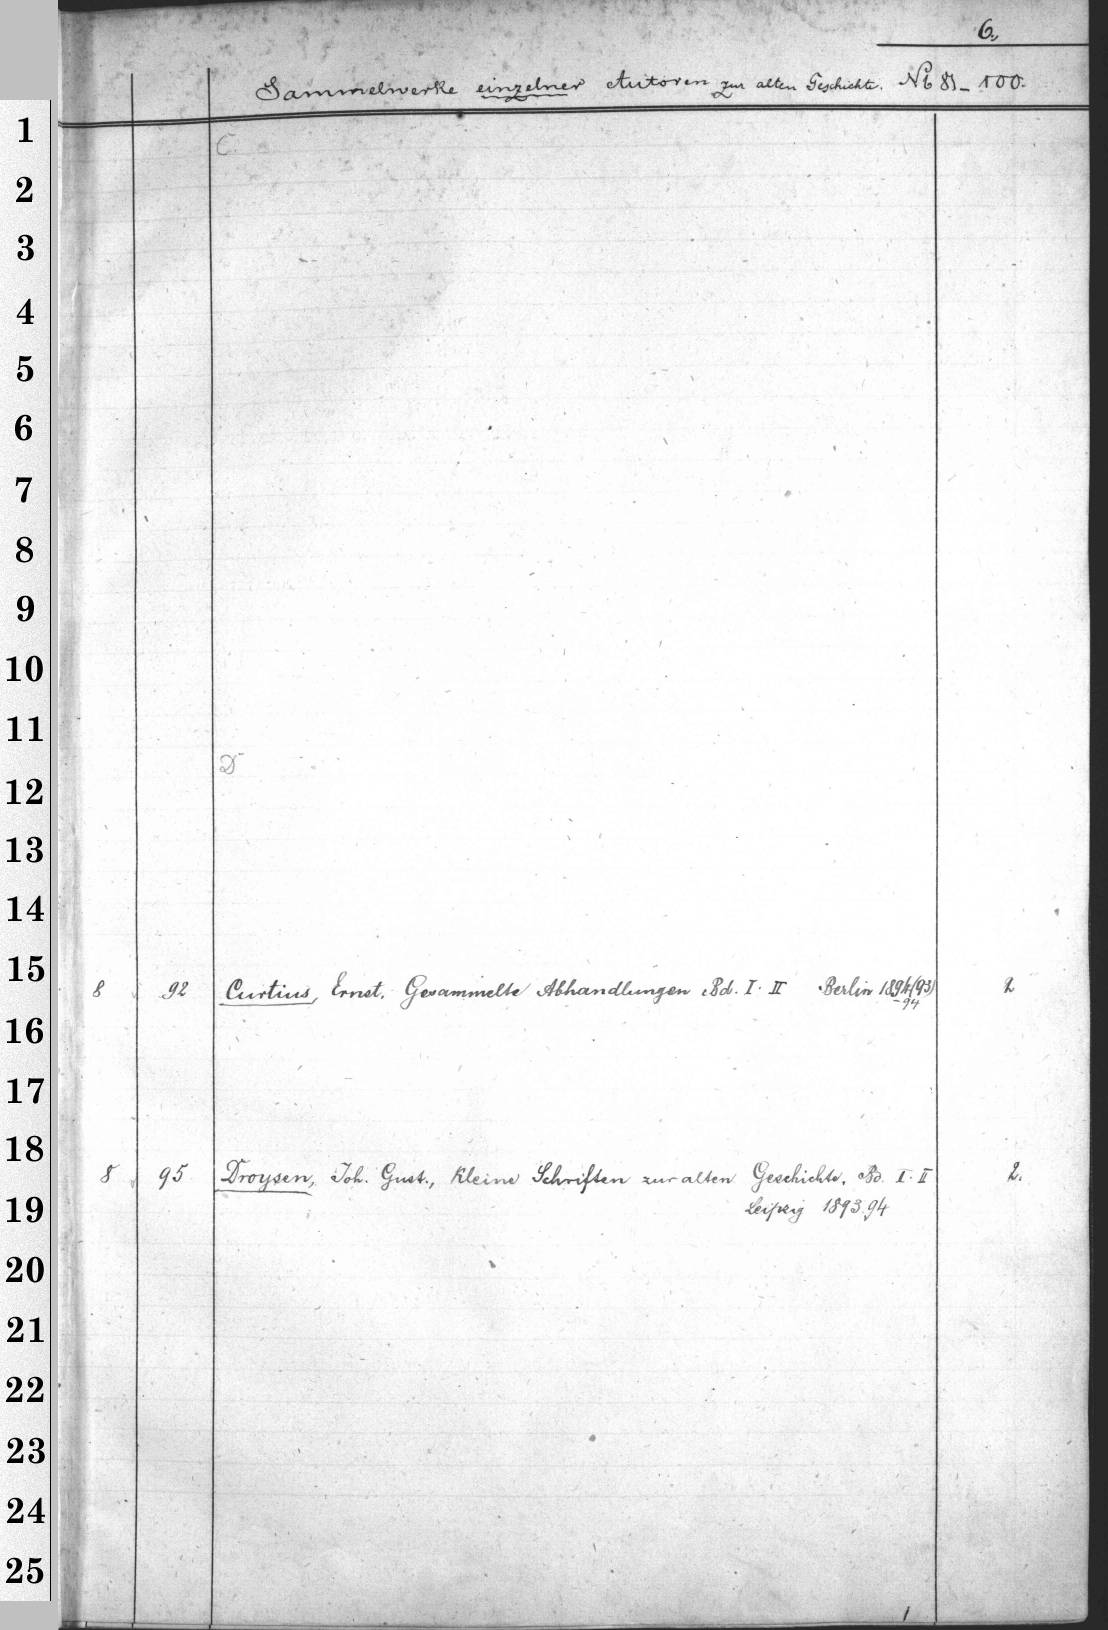 6.
Sammelwerke einzelner Autoren zur alten Geschichte. № 81-100.
1
C.
2
3
4
5
6
7
8
9
10
11
D
12
13
14
15
8 92 Curtius, Ernst. Gesammelte Abhandlungen Bd. I. II Berlin 1894(93) 2
-94
16
17
18
8 95 Droysen, Joh. Gust., kleine Schriften zur alten Geschichte. Bd. I. II 2.
19
Leipzig 1893.94
20
21
22
23
24
25
1